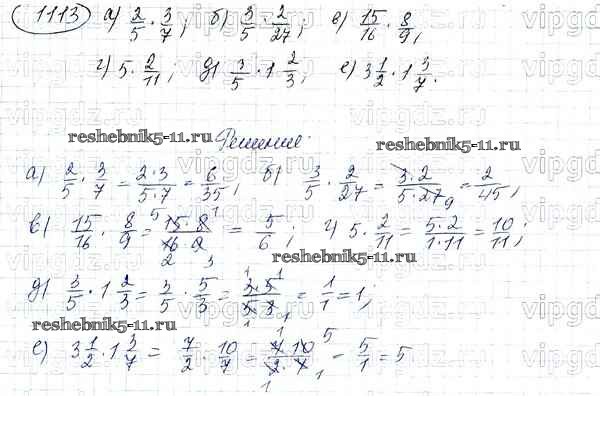 1113 а) 2/5 · 3/7; б) 3/5 · 2/27; в) 15/16 · 8/9;
г) 5 · 2/11; д) 3/5 · 1 2/3; е) 3 1/2 · 1 3/7.
reshebnik5-11.ru Решение: reshebnik5-11.ru
а) 2/5 · 3/7 = 2·3/5·7 = 6/35; б) 3/5 · 2/27 = 3·2/5·27 9 = 2/45;
в) 15/16 · 8/9 = 5 15·8 1/16·9 2 3 = 5/6; г) 5 · 2/11 = 5·2/1·11 = 10/11;
reshebnik5-11.ru
д) 3/5 · 1 2/3 = 3/5 · 5/3 = 1 3·5 1/5·3 1 1 = 1/1 = 1;
reshebnik5-11.ru
е) 3 1/2 · 1 3/7 = 7/2 · 10/7 = 1 7·10 5/2·7 1 1 = 5/1 = 5
vipgdz.ru